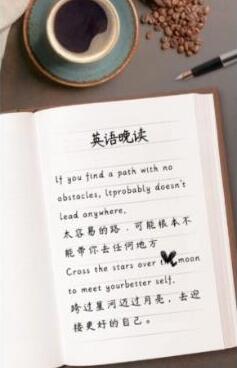 英语晚读
If you find a path with no
obstacles, Itprobably doesn't
lead anywhere.
太容易的路，可能根本不
能带你去任何地方
Cross the stars over moon
to meet yourbetter self.
跨过星河迈过月亮，去迎
接更好的自己。